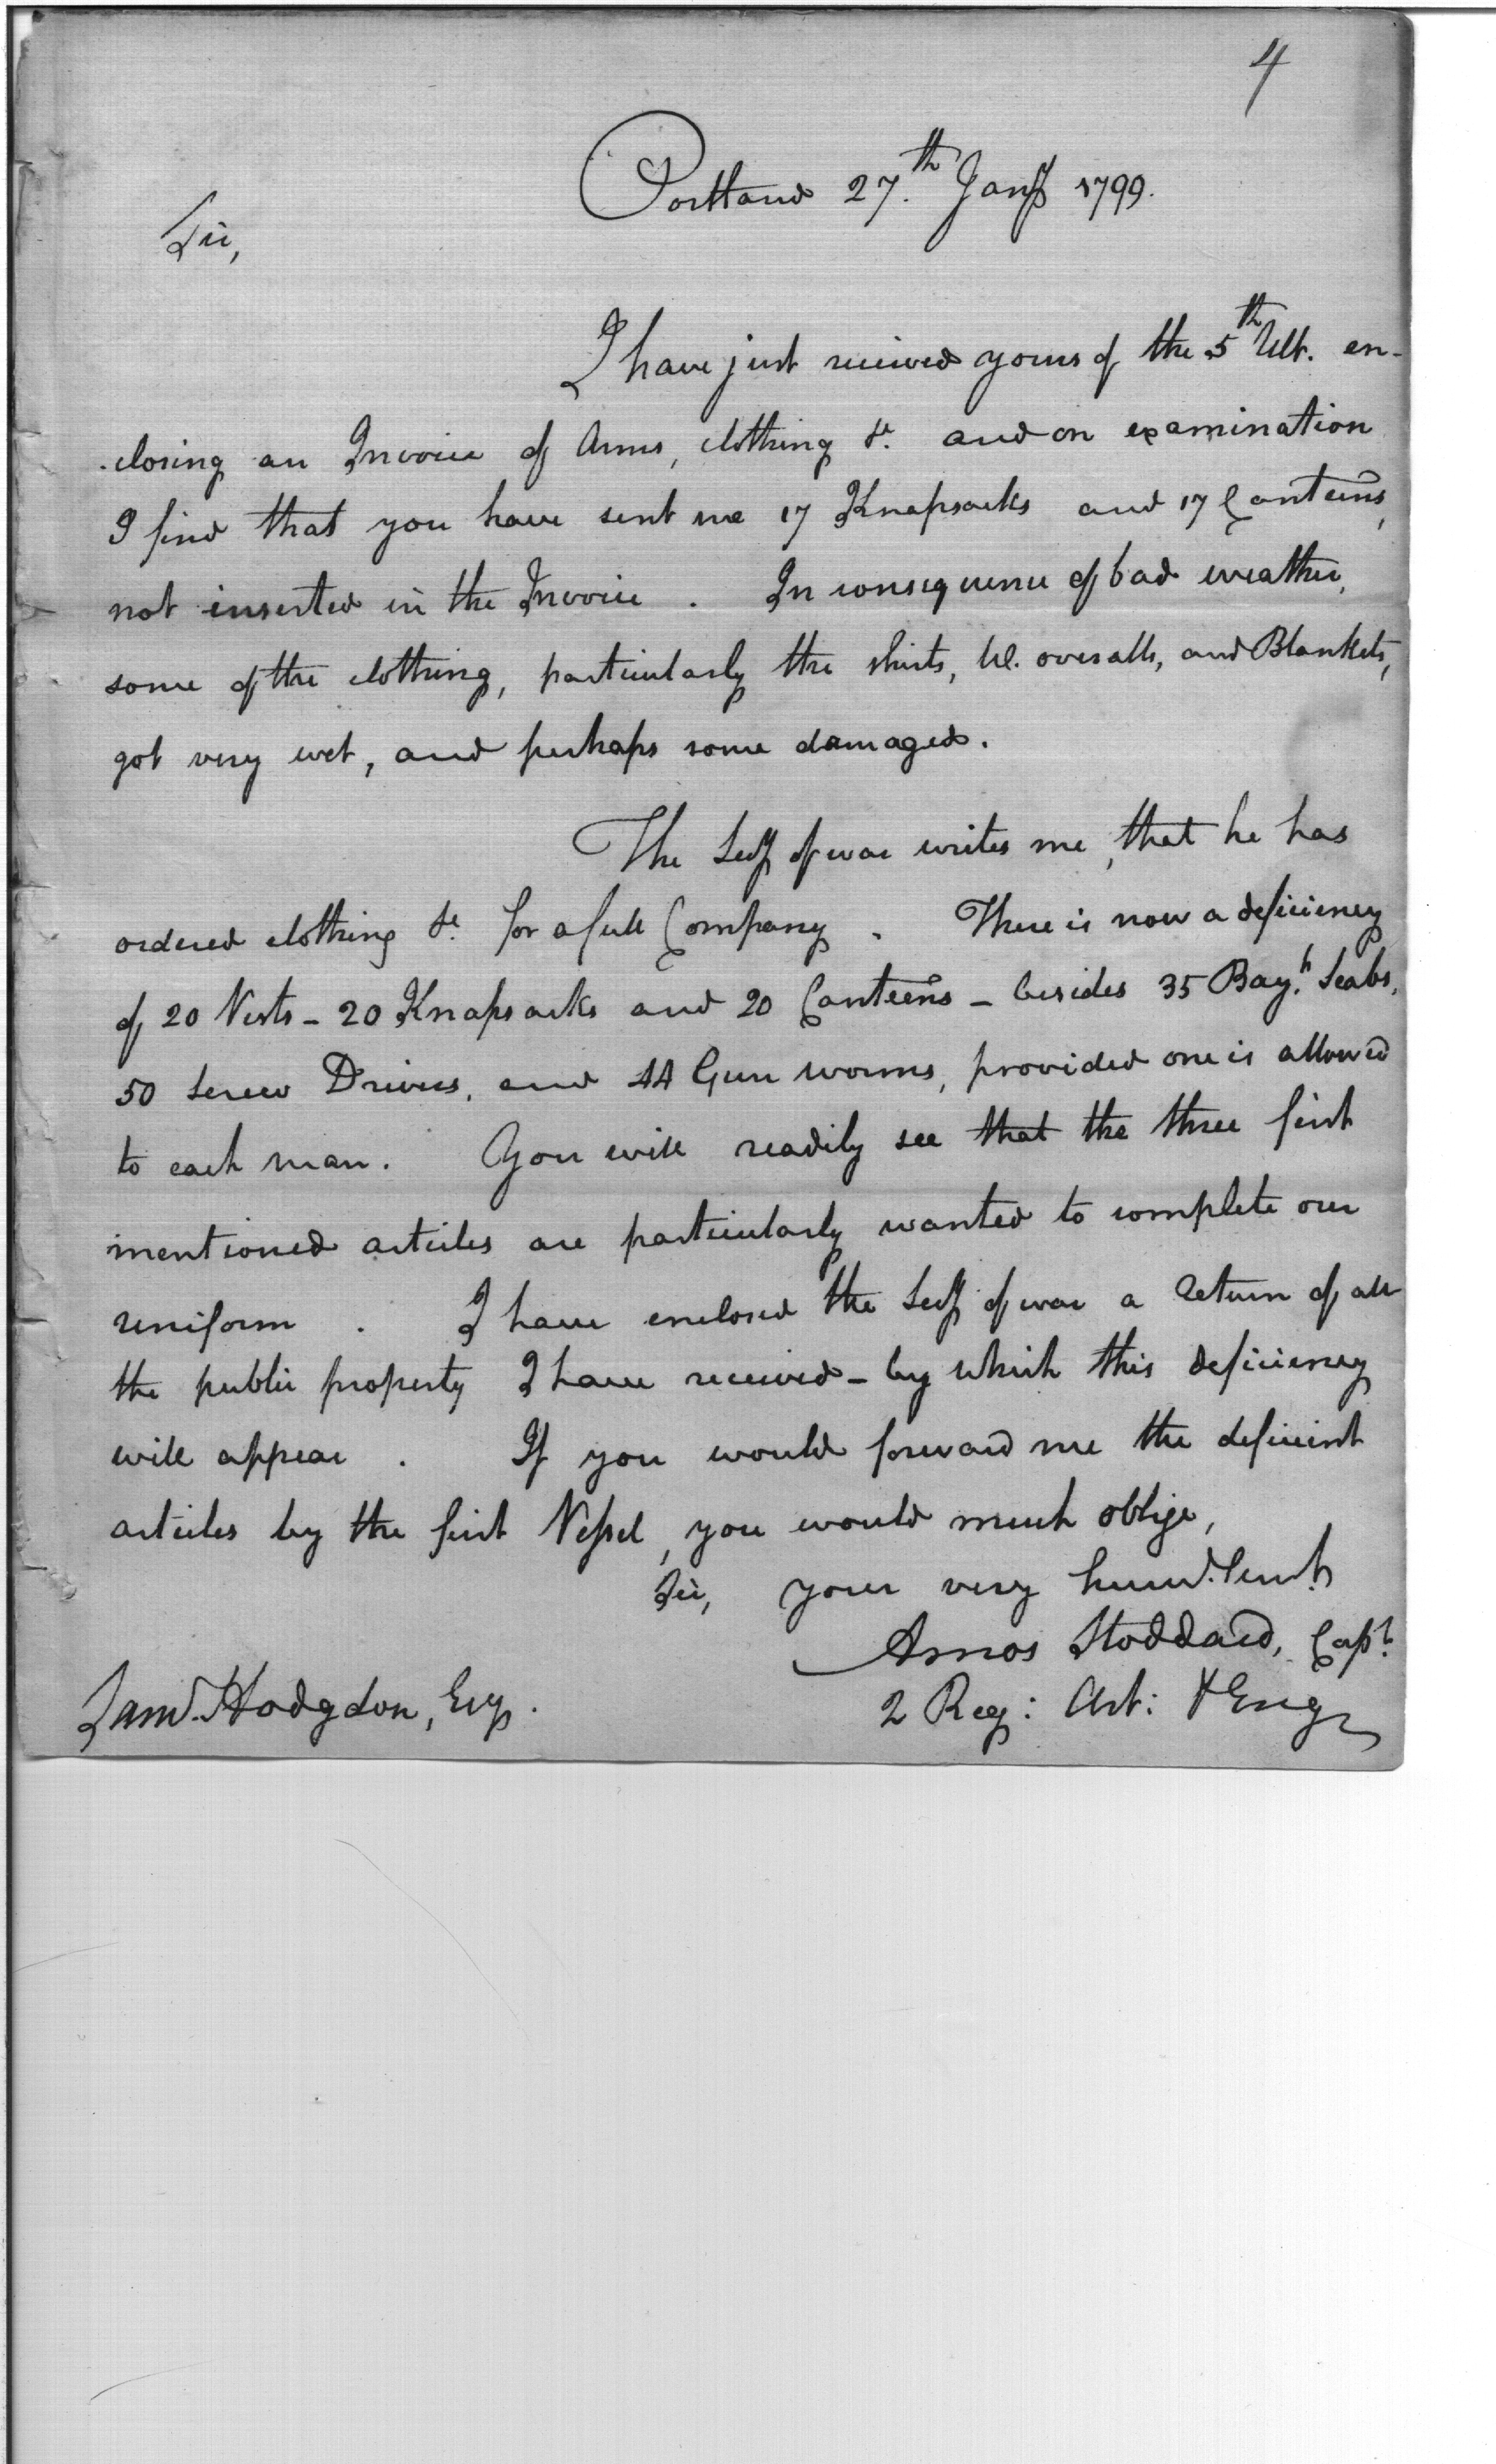 4
Portland 27.th Jany 1799.
Sir,
I have just received yours of the 5th Ult. en-
-closing an Invoice of Arms, clothing &c. and on examination
I find that you have sent me 17 Knapsacks and 17 Canteens,
not inserted in the Invoice. In consequence of bad weather,
some of the clothing, particularly the shirts, Wl. overalls, and Blankets,
got very wet, and perhaps some damaged.
The Secy of war writes me, that he has
ordered clothing &c. for a full Company. There is now a deficiency
of 20 Vests - 20 Knapsacks and 20 Canteens - besides 35 Bayt. Scabs,
50 Screw Drivers, and 44 Gun worms, provided one is allowed
to each man. You will readily see that the three first
mentioned articles are particularly wanted to complete our
uniform. I have enclosed the Secy of war a return of all
the public property I have received - by which this deficiency
will appear. If you would forward me the deficient
articles by the first Vessel, you would much oblige,
Sir, your very humb. Servt.
Amos Stoddard, Capt.
2 Reg: Art: & Engr
Saml. Hodgdon, Esq.